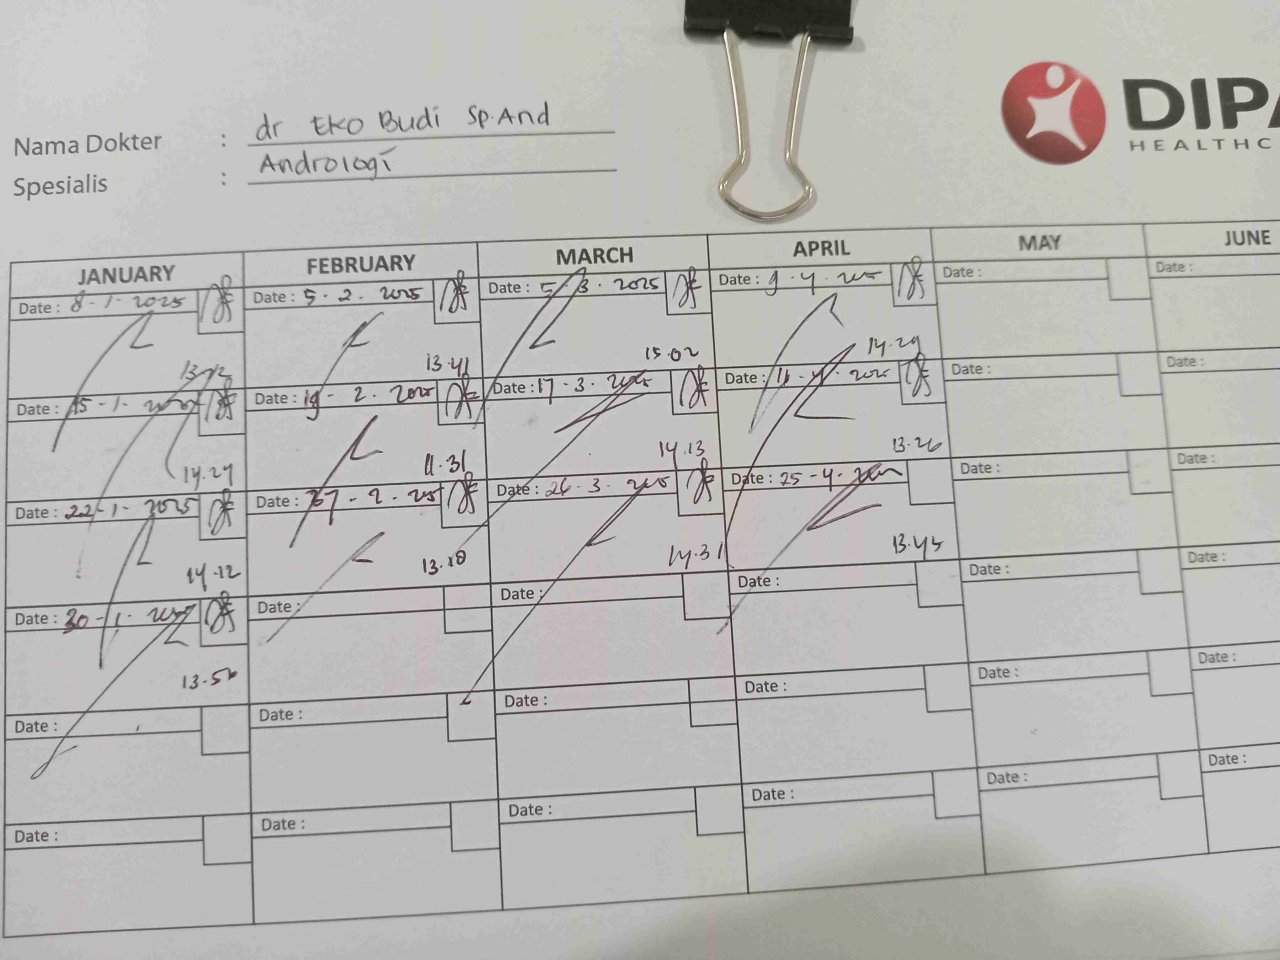 DIPA
HEALTHC
Nama Dokter : dr Eko Budi Sp.And
Spesialis : Andrologi
JANUARY FEBRUARY MARCH APRIL MAY JUNE
Date : 8-1-2025 Date : 5.2.2025 Date : 5.3.2025 Date : 9.4.2025 Date : Date :
13.12 13.41 15.02 14.29
Date : 15-1-2025 Date : 19-2.2025 Date : 17-3.2025 Date : 16-4.2025 Date : Date :
14.27 11.31 14.13 13.26
Date : 22-1.2025 Date : 27-2-2025 Date : 26-3.2025 Date : 25-4.2025 Date : Date :
14.12 13.18 14.31 13.45
Date : 30-1-2025 Date : Date : Date : Date : Date :
13.56
Date : Date : Date : Date : Date : Date :
Date : Date : Date : Date : Date : Date :